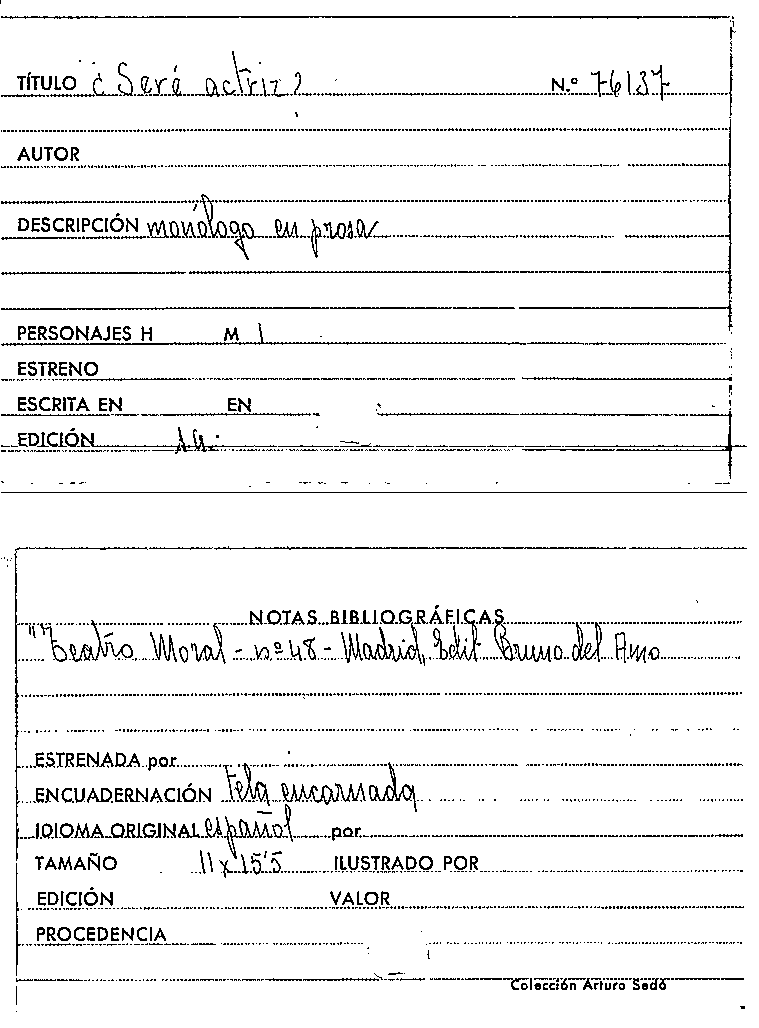 TÍTULO ¿Seré actriz? N.º 76137
AUTOR
DESCRIPCIÓN monólogo en prosa
PERSONAJES H M 1
ESTRENO
ESCRITA EN EN
EDICIÓN
NOTAS BIBLIOGRÁFICAS
"Teatro Moral - nº 48 - Madrid, Edit Bruno del Amo
ESTRENADA por
ENCUADERNACIÓN tela encarnada
IDIOMA ORIGINAL español por
TAMAÑO 11 x 15'5 ILUSTRADO POR
EDICIÓN VALOR
PROCEDENCIA
Colección Arturo Sedó